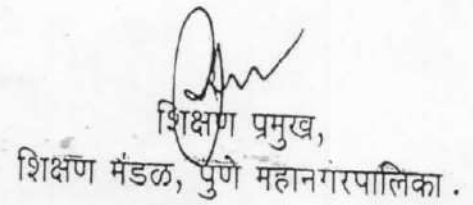 शिक्षण प्रमुख,
शिक्षण मंडळ, पुणे महानगरपालिका.